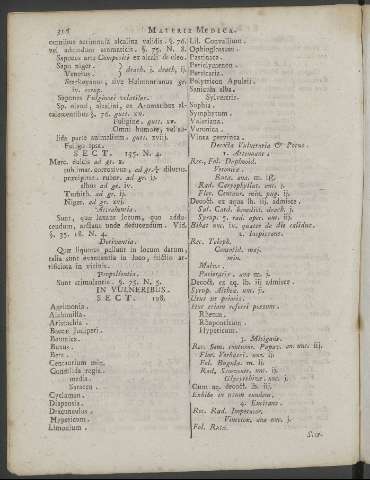 318 MATERIA MEDICA.
omnibus acrimonia alcalina validis. §. 76.
vel adendum aromatica. §. 75. N. 8.
Saponis arte Compositi ex alcali & oleo.
Sapo niger.
Venetus. } drach. j. drach. ij.
Starkeyanus, sive Helmontianus gr.
iv. scrup.
Saponis Fuliginei volatiles.
Sp. oleosi, alcalini, ex Aromaticis al-
calescentibus §. 76. gutt. xv.
Fuligine. gutt. xv.
Omni humore, vel so-
lida parte animalium. gutt. xviij.
Fuligo ipsa.
SECT. 195. N. 4.
Merc. dulcis ad gr. x.
sublimat. corrosivus, ad gr. dilutus.
præcipitat. ruber. ad gr. ij.
albus ad gr. iv.
Turbith. ad gr. ij.
Niger. ad gr. xvj.
Attrahentia.
Sunt, quæ laxant locum, quo addu-
cendum, aestum unde deducendum. Vid.
§. 35. 18. N. 4.
Derivantia.
Quæ liquores pellunt in locum datum,
talia sunt evacuantia in loco, fricatio ar-
tificiosa in vicinis.
Propellentia.
Sunt stimulantia. §. 75. N. 5.
IN VULNERIBUS.
SECT. 198.
Agrimonia.
Alchimilla.
Aristochia.
Baccæ Juniperi.
Betonica.
Buxus.
Beta.
Centaurium min.
Consolida regia.
media.
Saracen.
Cyclamen.
Diapensia.
Dracunculus.
Hypericum.
Limonium.
Lil. Convallium.
Ophioglossum.
Pastinaca.
Periclymenum.
Persicaria.
Pervinca.
Polytricum Apuleii.
Sanicula alba.
Sylvestris.
Sophia.
Symphytum.
Valeriana.
Veronica.
Vinca pervinca.
Decocta Vulneraria & Potus.
1. Attenuans.
Rec. Fol. Diphtonil.
Veronicæ.
Rutæ. ana m. iß.
Rad. Caryophyllat. unc. j.
Flor. Centaur. min. pug. ij.
Decoct. ex aqua lb. iij. admisce.
Sal. Card. benedict. drach. j.
Syrop. 5. rad. aper. unc. iij.
Bibat unc. iv. quater de die calidus.
2. Inspissans.
Rec. Teleph.
Consolid. maj.
min.
Malvæ.
Parietariæ. ana m. j.
Decoct. ex aq. lb. iij admisce.
Syrop. Althææ. unc. ij.
Usus ut prioris.
Huc etiam referri possunt.
Rheum.
Rhaponticum.
Hypericum.
3. Mitigans.
Rec. Sem. contusor. Papav. an. unc. iij.
Flor. Verbasci. unc. ij.
Fol. Buglossi. m. ij.
Rad. Scorzoner. unc. ij.
Glycyrrhizæ. unc. j.
Cum aq. decoct. lb. iij.
Exhibe in usum eundem.
4. Excitans.
Rec. Rad. Imperator.
Vincetox. ana unc. j.
Fol. Rutæ.
Scor-